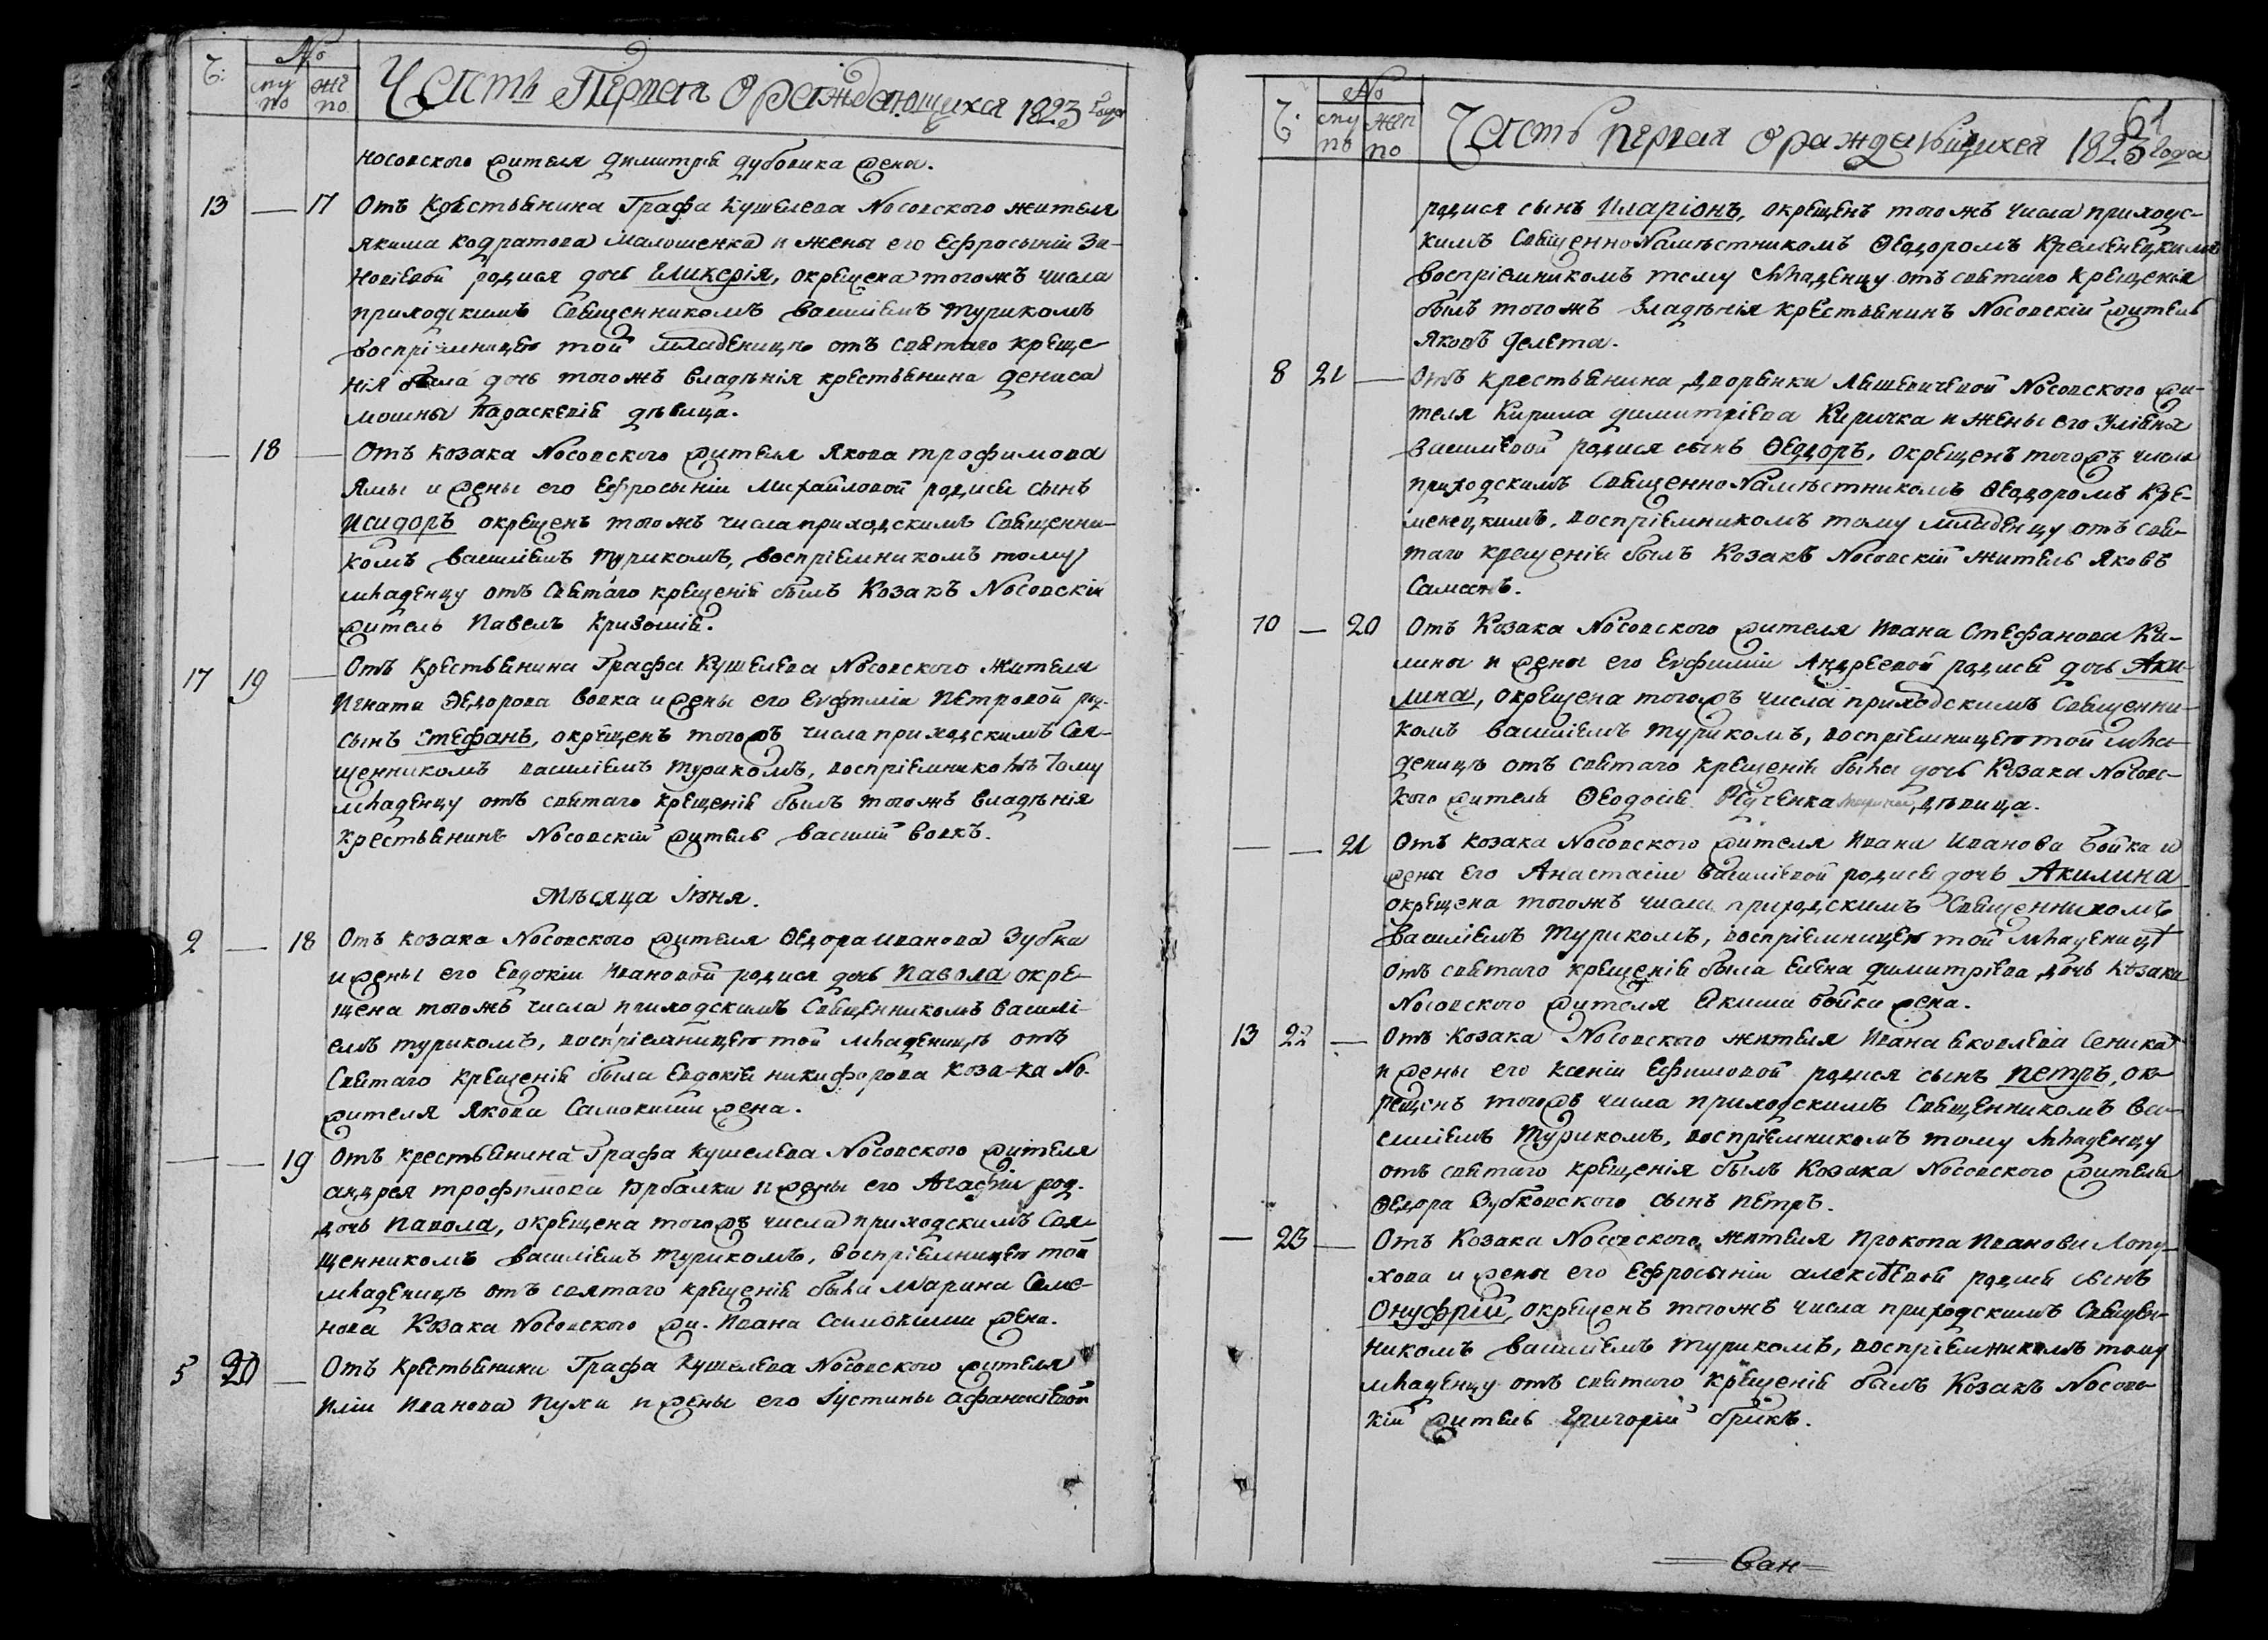 Ч: № му по же по Часть Первая О раждающихся 1823 Года
носовского жителя Димитрія Дубовика жена.
13 — 17 Отъ Крестьянина Графа Кушелева Носовского жителя
Якима Кодратова Малошенка и жены его Ефросыніи Зи-
новіевой родися дочь Гликерія, окрещена тогожъ числа
приходскимъ Священникомъ Василіемъ Туриномъ
воспріемницею той младеницѣ отъ святаго креще
нія была дочь тогожъ владѣнія крестьянина Дениса
Мошны Параскевія дѣвица.
— 18 — Отъ Козака Носовского жителя Якова Трофимова
Ямы и жены его Ефросыніи Михайловой родися сынъ
Исидоръ окрещенъ тогожъ числа приходскимъ Священни-
комъ Василіемъ Туриномъ, воспріемникомъ тому
младенцу отъ святаго крещенія былъ Козакъ Носовскій
житель Павелъ
17 19 — Отъ Крестьянина Графа Кушелева Носовского жителя
Игната Ѳедорова Вовка и жены его Евфиміи Петровой род.
сынъ Стефанъ, окрещенъ тогожъ числа приходскимъ Свя-
щенникомъ Василіемъ Туриномъ, воспріемникомъ тому
младенцу отъ святаго крещенія былъ тогожъ владѣнія
крестьянинъ Носовскій житель Василій Вовкъ.
Мѣсяца Іюня.
2 — 18 Отъ Козака Носовского жителя Ѳедора Иванова Зубка
и жены его Евдокіи Ивановой родися дочь Павола окре-
щена тогожъ числа приходскимъ Священникомъ Василі-
емъ Турыномъ, воспріемницею той младеницѣ отъ
Святаго крещенія была Евдокія Никифорова Козака Но.
жителя Якова Самокиши жена.
— — 19 Отъ крестьянина Графа Кушелева Носовского жителя
Андрея Трофимова и жены его Агафіи род.
дочь Павола, окрещена тогожъ числа приходскимъ Свя-
щенникомъ Василіемъ Туриномъ, воспріемницею той
младеницѣ отъ святаго крещенія была Марина Семе-
нова Козака Носовского жи. Ивана Самокиши жена.
5 20 — Отъ Крестьянина Графа Кушелева Носовского жителя
Иліи Иванова Пухи и жены его Іустины Афанасіевой
61
Ч: № му по жен по Часть первая О раждающихся 1823 Года
родися сынъ Иларіонъ, окрещенъ тогожъ числа приходс-
кимъ СвященноНамѣстникомъ Ѳеодоромъ Кременецкимъ
воспріемникомъ тему младенцу отъ святаго крещенія
былъ тогожъ владѣнія крестьянинъ Носовскій житель
Яковъ Делета.
8 21 — Отъ крестьянина Дворянки Носовского жи-
теля Кирила Димитріева Киричка и жены его Уліяны
Василіевой родися сынъ Ѳеодоръ, окрещенъ тогожъ числа
приходскимъ СвященноНамѣстникомъ Ѳеодоромъ Кре-
менецкимъ, воспріемникомъ тому младенцу отъ свя-
таго крещенія былъ Козакъ Носовскій житель Яковъ

10 — 20 Отъ Козака Носовского жителя Ивана Стефанова Ка-
лины и жены его Евфиміи Андреевой родися дочь Аки-
лина, окрещена тогожъ числа приходскимъ Священни-
комъ Василіемъ Туриномъ, воспріемницею той мла-
деницѣ отъ святаго крещенія была дочь Козака Носовс-
кого жителя Ѳеодосія дѣвица.
— — 21 Отъ Козака Носовского жителя Ивана Иванова Бойка и
жены его Анастасіи Василіевой родися дочь Акилина
окрещена тогожъ числа приходскимъ Священникомъ
Василіемъ Туриномъ, воспріемницею той младеницѣ
отъ святаго крещенія была Елена Димитріева дочь Козака
Носовского жителя Якима Бойка жена.
13 22 — Отъ Козака Носовского жителя Ивана Яковлева Сеника
и жены его Ксеніи Ефимовой родися сынъ Петръ, ок-
рещенъ тогожъ числа приходскимъ Священникомъ Ва-
силіемъ Туриномъ, воспріемникомъ тому младенцу
отъ святаго крещенія былъ Козака Носовского жителя
Ѳедора Зубковского сынъ Петръ.
— 23 — Отъ Козака Носовского жителя Прокопа Иванова Лопу-
хова и жены его Ефросыніи Алексѣевой родися сынъ
Онуфрій, окрещенъ тогожъ числа приходскимъ Священ-
никомъ Василіемъ Туриномъ, воспріемникомъ тому
младенцу отъ святаго крещенія былъ Козакъ Носовс-
кій житель Григорій Брикъ.